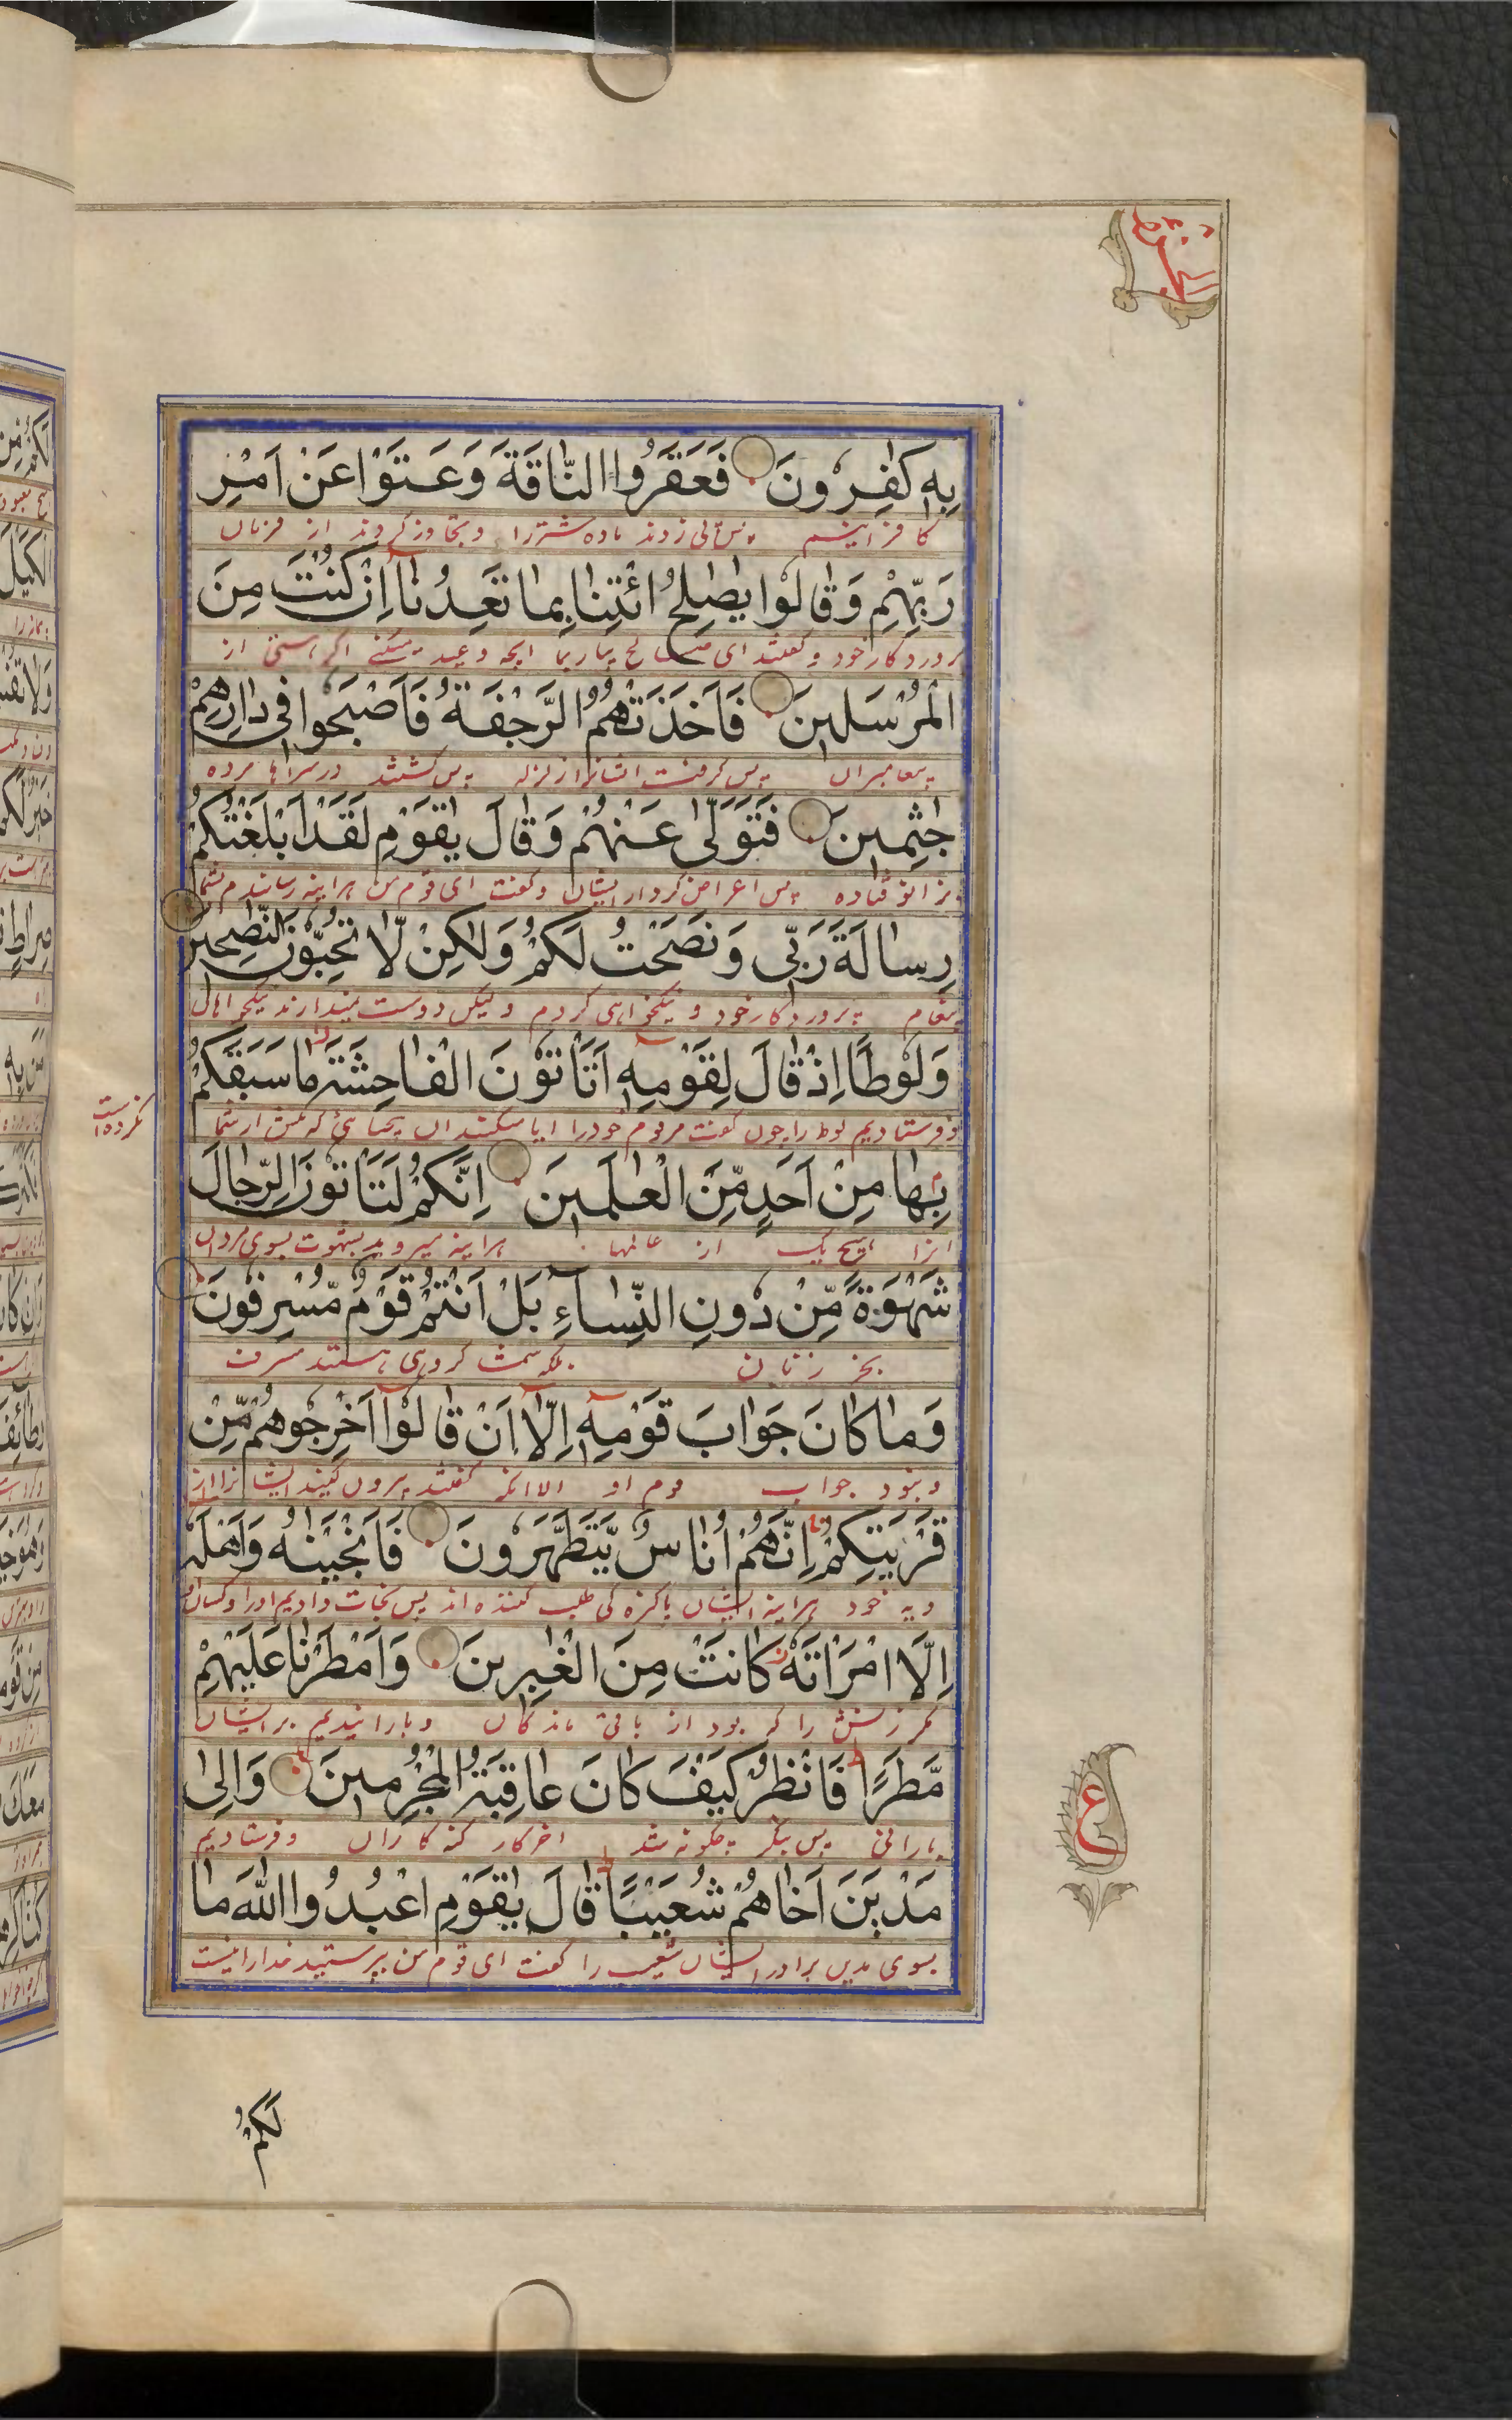 الجزء
بِهٖ كٰفِرُونَ فَعَقَرُوا النَّاقَةَ وَعَتَوْا عَنْ اَمْرِ
كافرانیم پس پی زدند ماده شتر را و تجاوز کردند از فرمان
رَبِّهِمْ وَقَالُوْا يٰصٰلِحُ ائْتِنَا بِمَا تَعِدُنَآ اِنْ كُنْتَ مِنَ
پروردکار خود و گفتند ای صالح بیار بما انچه وعید میکنے اکر هستی از
الْمُرْسَلِيْنَ فَاَخَذَتْهُمُ الرَّجْفَةُ فَاَصْبَحُوا فِي دَارِهِمْ
پیغامبران پس گرفت ایشانرا زلزله پس گشتند در سراها مرده
جٰثِمِيْنَ فَتَوَلّٰى عَنْهُمْ وَقَالَ يٰقَوْمِ لَقَدْ اَبْلَغْتُكُمْ
بزانو فتاده پس اعراض کرد از ایشان و گفت ای قوم من هراینه رسانیدم بشما
رِسَالَةَ رَبِّي وَنَصَحْتُ لَكُمْ وَلٰكِنْ لَّا تُحِبُّوْنَ النّٰصِحِيْنَ
پیغام پروردکار خود و نیکخواهی کردم و لیکن دوست نمیدارند نیکخواهان
وَلُوْطًا اِذْ قَالَ لِقَوْمِهٖٓ اَتَاْتُوْنَ الْفَاحِشَةَ مَا سَبَقَكُمْ
و فرستادیم لوط را چون گفت مر قوم خود را ایا میکنید ان بیحیائی که پیش از شما
نکرده است
بِهَا مِنْ اَحَدٍ مِّنَ الْعٰلَمِيْنَ اِنَّكُمْ لَتَاْتُوْنَ الرِّجَالَ
انرا هیچ یک از عالمها هراینه میروید بشهوت بسوی مردان
شَهْوَةً مِّنْ دُوْنِ النِّسَآءِ بَلْ اَنْتُمْ قَوْمٌ مُّسْرِفُوْنَ
بجز زنان بلکه شما گروهی هستند مسرف
وَمَا كَانَ جَوَابَ قَوْمِهٖٓ اِلَّآ اَنْ قَالُوْٓا اَخْرِجُوهُمْ مِّنْ
و نبود جواب قوم او الا انکه گفتند بیرون کنید ایشانرا از
قَرْيَتِكُمْ اِنَّهُمْ اُنَاسٌ يَّتَطَهَّرُوْنَ فَاَنْجَيْنٰهُ وَاَهْلَهٗٓ
دیه خود هراینه ایشان پاکیزه کی طلب کننده اند پس نجات دادیم او را و کسان
اِلَّا امْرَاَتَهٗ كَانَتْ مِنَ الْغٰبِرِيْنَ وَاَمْطَرْنَا عَلَيْهِمْ
مکر زنش را که بود از باقی ماندگان و بارانیدیم بر ایشان
مَّطَرًا فَانْظُرْ كَيْفَ كَانَ عَاقِبَةُ الْمُجْرِمِيْنَ وَاِلٰى
بارانی پس بنگر چگونه شد اخر کار گنه کاران و فرستادیم
مَدْيَنَ اَخَاهُمْ شُعَيْبًا قَالَ يٰقَوْمِ اعْبُدُوا اللهَ مَا
بسوی مدین برادر ایشان شعیب را گفت ای قوم من بپرستید خدا را نیست
ع
لَكُمْ